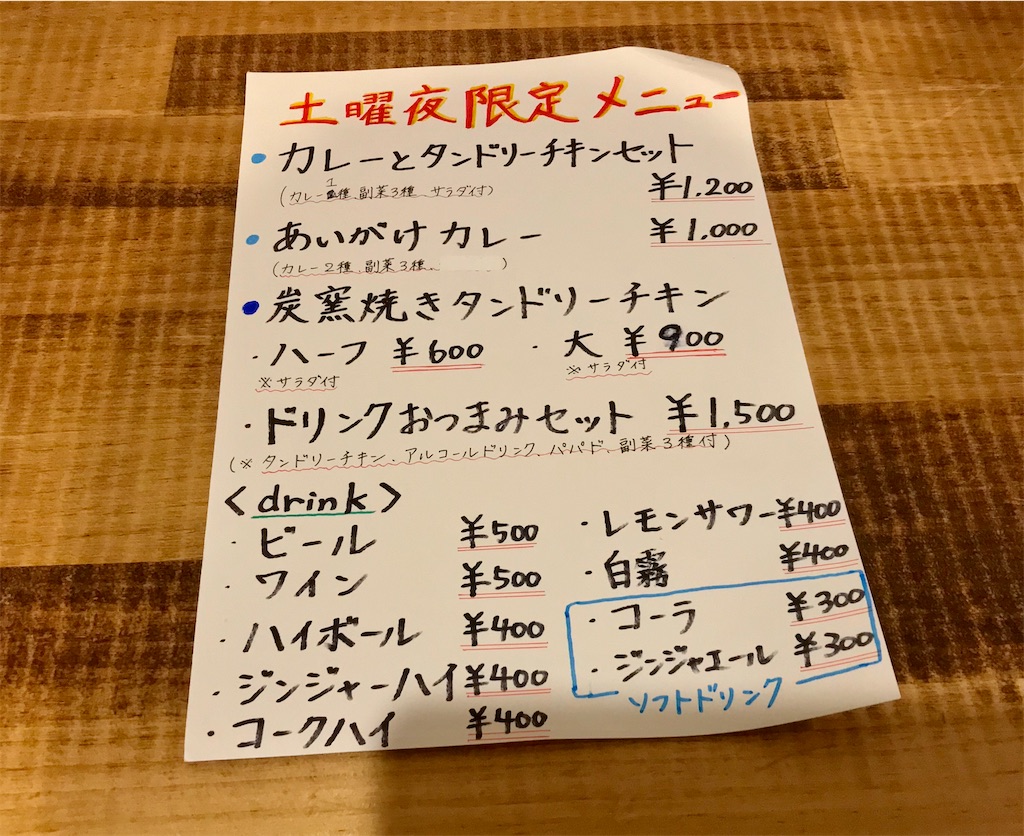 土曜夜限定メニュー
・カレーとタンドリーチキンセット ¥1,200
(カレー1種、副菜3種、サラダ付)
・あいがけカレー ¥1,000
(カレー2種、副菜3種、 )
・炭窯焼きタンドリーチキン
・ハーフ ¥600 ・大 ¥900
※サラダ付 ※サラダ付
・ドリンクおつまみセット ¥1,500
(※タンドリーチキン、アルコールドリンク、パパド、副菜3種付)
<drink>
・ビール ¥500
・ワイン ¥500
・ハイボール ¥400
・ジンジャーハイ ¥400
・コークハイ ¥400
・レモンサワー ¥400
・白霧 ¥400
・コーラ ¥300
・ジンジャエール ¥300
ソフトドリンク